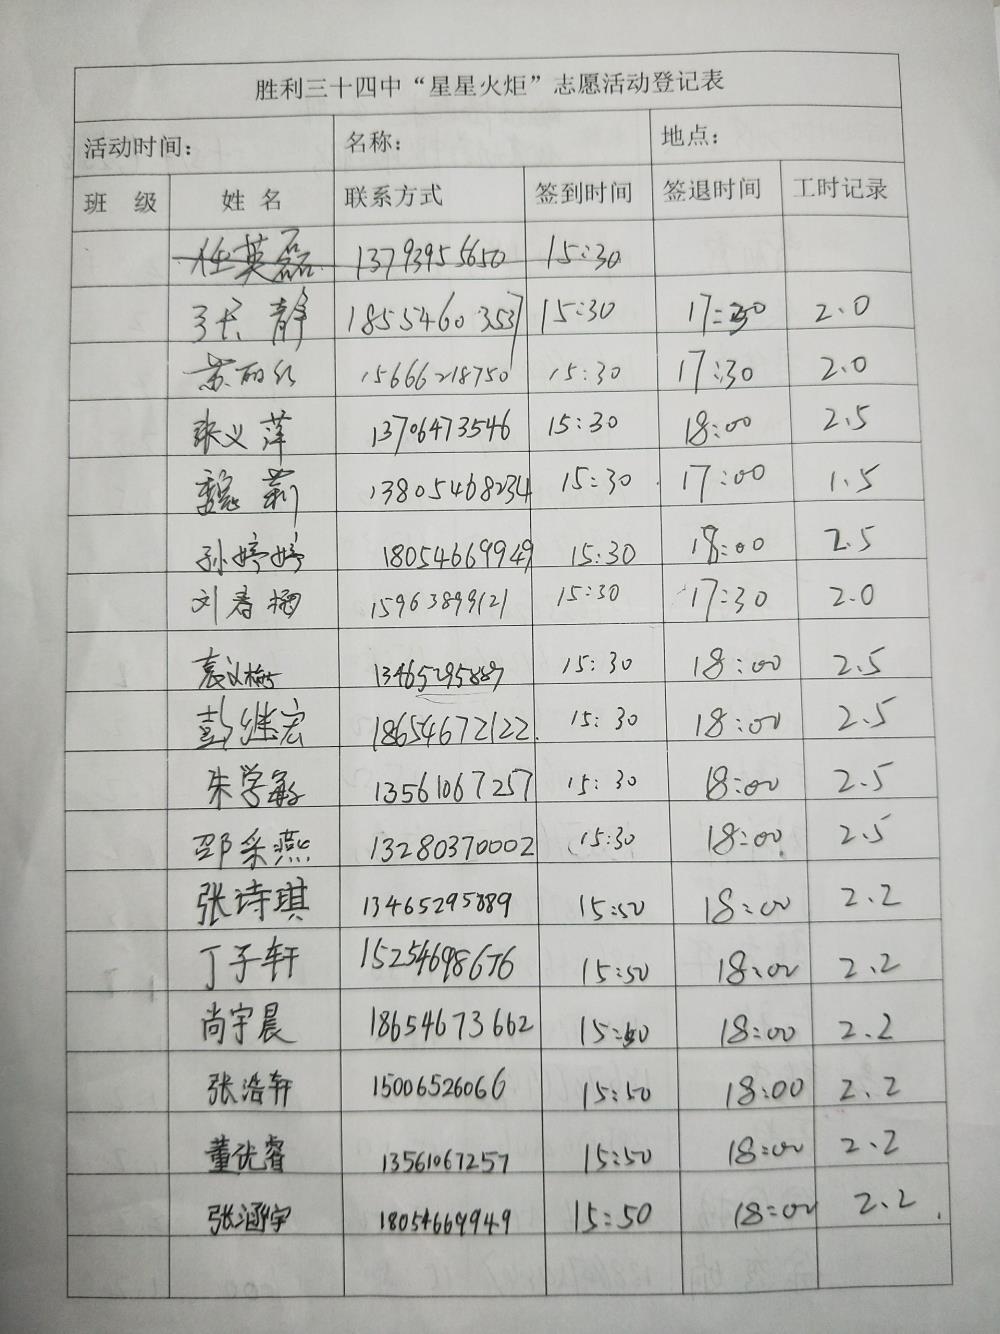 胜利三十四中“星星火炬”志愿活动登记表
活动时间: 名称: 地点:
班 级 姓 名 联系方式 签到时间 签退时间 工时记录
任英磊 13793955650 15:30
张静 18554603537 15:30 17:30 2.0
苏丽红 15666218750 15:30 17:30 2.0
张义萍 13706473546 15:30 18:00 2.5
魏莉 13805468234 15:30 17:00 1.5
孙婷婷 18054669949 15:30 18:00 2.5
刘春梅 15963899121 15:30 17:30 2.0
袁义梅 13465295889 15:30 18:00 2.5
彭继宏 18654672122 15:30 18:00 2.5
朱学敏 13561067257 15:30 18:00 2.5
邵采燕 13280370002 15:30 18:00 2.5
张诗琪 13465295889 15:50 18:00 2.2
丁子轩 15254698676 15:50 18:00 2.2
尚宇晨 18654673662 15:50 18:00 2.2
张浩轩 15006526066 15:50 18:00 2.2
董优睿 13561067257 15:50 18:00 2.2
张涵宇 18054669949 15:50 18:00 2.2